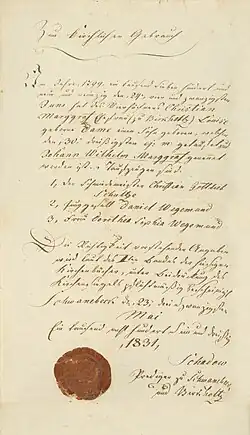 Zum Kirchlichen Gebrauch
Im Jahre 1799, ein tausend sieben hundert und
neun und neunzig den 24, vier und zwanzigsten
Juni hat des Christian
Marggraf zu Birkholtz
geborene Dame einen Sohn geboren, welcher
den "30" dreißigsten ej. m. getauft und
Johann Wilhelm Marggraf genannt
worden ist. Taufzeugen sind:
1, der Schmidemeister Christian Gottlieb
Schultze
2, Junggesell Daniel Wegemund
3, Frau Dorothea Sophia Wegemund
Die Richtigkeit vorstehender Angaben
wird laut des Bandes des hiesigen
Kirchenbuches, unter Beidruckung des
Kirchensiegels pflichtmäßig bescheinigt
Schwanebeck d. 23, drei und zwanzigsten
Mai
Ein tausend acht hundert ein und dreißig
1831,
Schadow
Prediger zu Schwanebeck
und Birkholtz